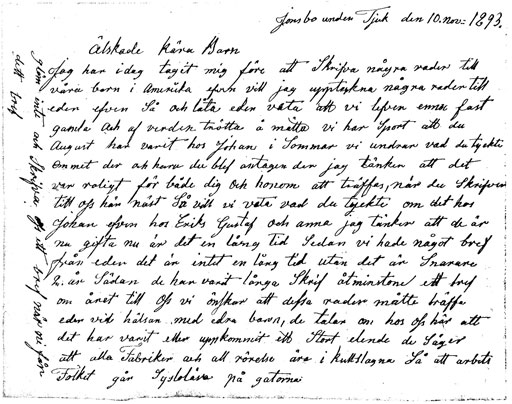 Jonsbo unden Tjuk den 10. nov. 1893.
Älskade Kära Barn
Jag har idag tagit mig före att Skrifva några rader till
våra barn i Amerika efven vill jag uppteckna några rader till
eder efven Så och låta eder väta att vi lefven ennu fast
gamla och af verden trötta å mätta vi har Sport att du
August har varit hos Johan i Sommar vi undrar vad du tyckti
om met der och huru du blef antagen der jag tänker att det
var roligt för både dig och honom att träffas, når du Skrifver
till oss här näst Så vill vi väta vad du tyckte om det hos
Johan efven hos Eriks Gustaf och anna jag tänker att de är
nu gifta nu är det en lång tid Sedan vi hade något bref
från eden det är intet en lång tid utan det är Snarare
2. år Sådan de har varit långa Skrif åtminstone ett bref
om året till Oss vi önskar att dessa rader måtte träffa
eder vid hälsan med edra barn, de talar om hos oss här att
det har varit eller uppkommit ett Stort elende de Säger
att alla Fabriker och all rörelse äro i kullslagna Så att arbets
Folket går Syslolåsa på gatorna
glöm intet och Skrifva Oss ett bref når ni får
dett bref